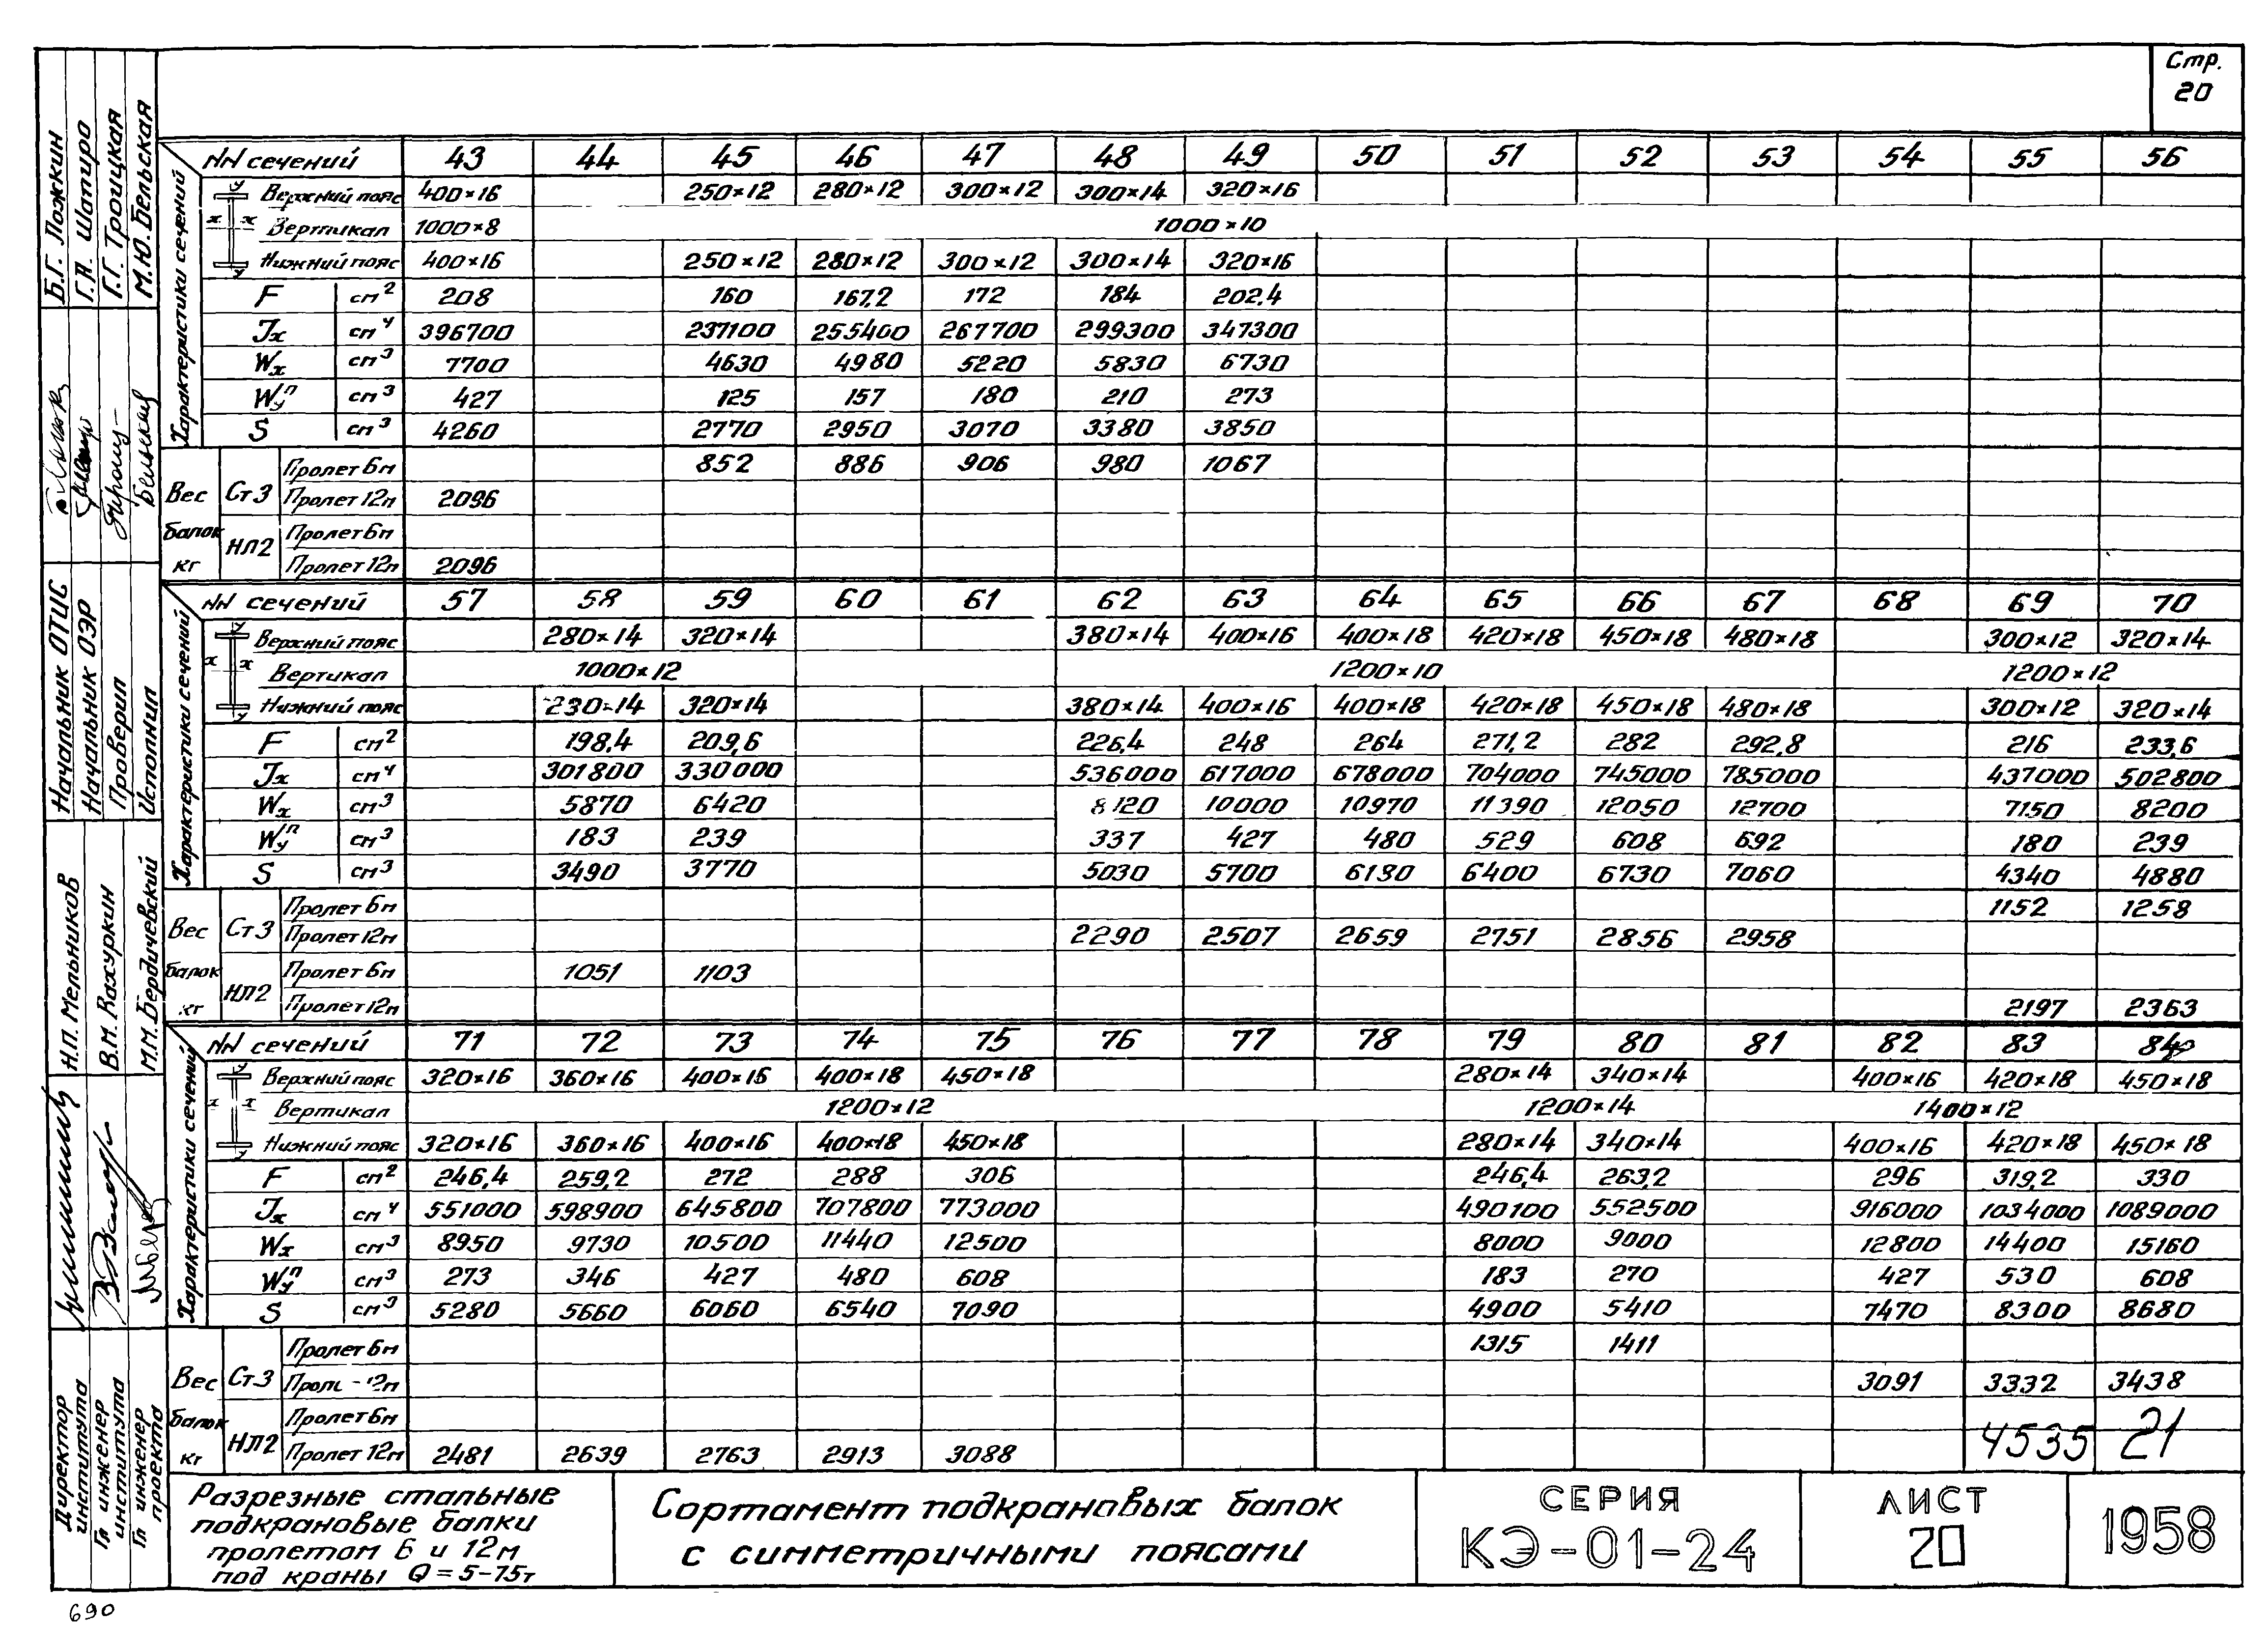 Стр.
20
NN сечений 43 44 45 46 47 48 49 50 51 52 53 54 55 56
Характеристики сечений
Верхний пояс 400×16 250×12 280×12 300×12 300×14 320×16
Вертикал 1000×8 1000×10
Нижний пояс 400×16 250×12 280×12 300×12 300×14 320×16
F см² 208 160 167,2 172 184 202,4
Jx см⁴ 396700 237100 255400 267700 299300 347300
Wx см³ 7700 4630 4980 5220 5830 6730
Wyп см³ 427 125 157 180 210 273
S см³ 4260 2770 2950 3070 3380 3850
Вес балок кг
Ст3 Пролет 6м 852 886 906 980 1067
Пролет 12м 2096
НЛ2 Пролет 6м
Пролет 12м 2096
NN сечений 57 58 59 60 61 62 63 64 65 66 67 68 69 70
Характеристики сечений
Верхний пояс 280×14 320×14 380×14 400×16 400×18 420×18 450×18 480×18 300×12 320×14
Вертикал 1000×12 1200×10 1200×12
Нижний пояс 230×14 320×14 380×14 400×16 400×18 420×18 450×18 480×18 300×12 320×14
F см² 198,4 209,6 226,4 248 264 271,2 282 292,8 216 233,6
Jx см⁴ 301800 330000 536000 617000 678000 704000 745000 785000 437000 502800
Wx см³ 5870 6420 8120 10000 10970 11390 12050 12700 7150 8200
Wyп см³ 183 239 337 427 480 529 608 692 180 239
S см³ 3490 3770 5030 5700 6180 6400 6730 7060 4340 4880
Вес балок кг
Ст3 Пролет 6м 1152 1258
Пролет 12м 2290 2507 2659 2751 2856 2958
НЛ2 Пролет 6м 1051 1103
Пролет 12м 2197 2363
NN сечений 71 72 73 74 75 76 77 78 79 80 81 82 83 84
Характеристики сечений
Верхний пояс 320×16 360×16 400×16 400×18 450×18 280×14 340×14 400×16 420×18 450×18
Вертикал 1200×12 1200×14 1400×12
Нижний пояс 320×16 360×16 400×16 400×18 450×18 280×14 340×14 400×16 420×18 450×18
F см² 246,4 259,2 272 288 306 246,4 263,2 296 319,2 330
Jx см⁴ 551000 598900 645800 707800 773000 490100 552500 916000 1034000 1089000
Wx см³ 8950 9730 10500 11440 12500 8000 9000 12800 14400 15160
Wyп см³ 273 346 427 480 608 183 270 427 530 608
S см³ 5280 5660 6060 6540 7090 4900 5410 7470 8300 8680
Вес балок кг
Ст3 Пролет 6м 1315 1411
12м 3091 3332 3438
НЛ2 Пролет 6м
Пролет 12м 2481 2639 2763 2913 3088
4535 21
Разрезные стальные
подкрановые балки
пролетом 6 и 12м
под краны Q=5-75т
Сортамент подкрановых балок
с симметричными поясами
СЕРИЯ
КЭ-01-24
ЛИСТ
20
1958
690
Б.Г. Ложкин
Г.А. Шапиро
Г.Г. Троицкая
М.Ю. Бельская
Начальник ОТИС
Начальник ОЭР
Проверил
Исполнил
Н.П. Мельников
В.М. Вахуркин
М.М. Бердичевский
Директор института
Гл инженер института
Гл инженер проекта